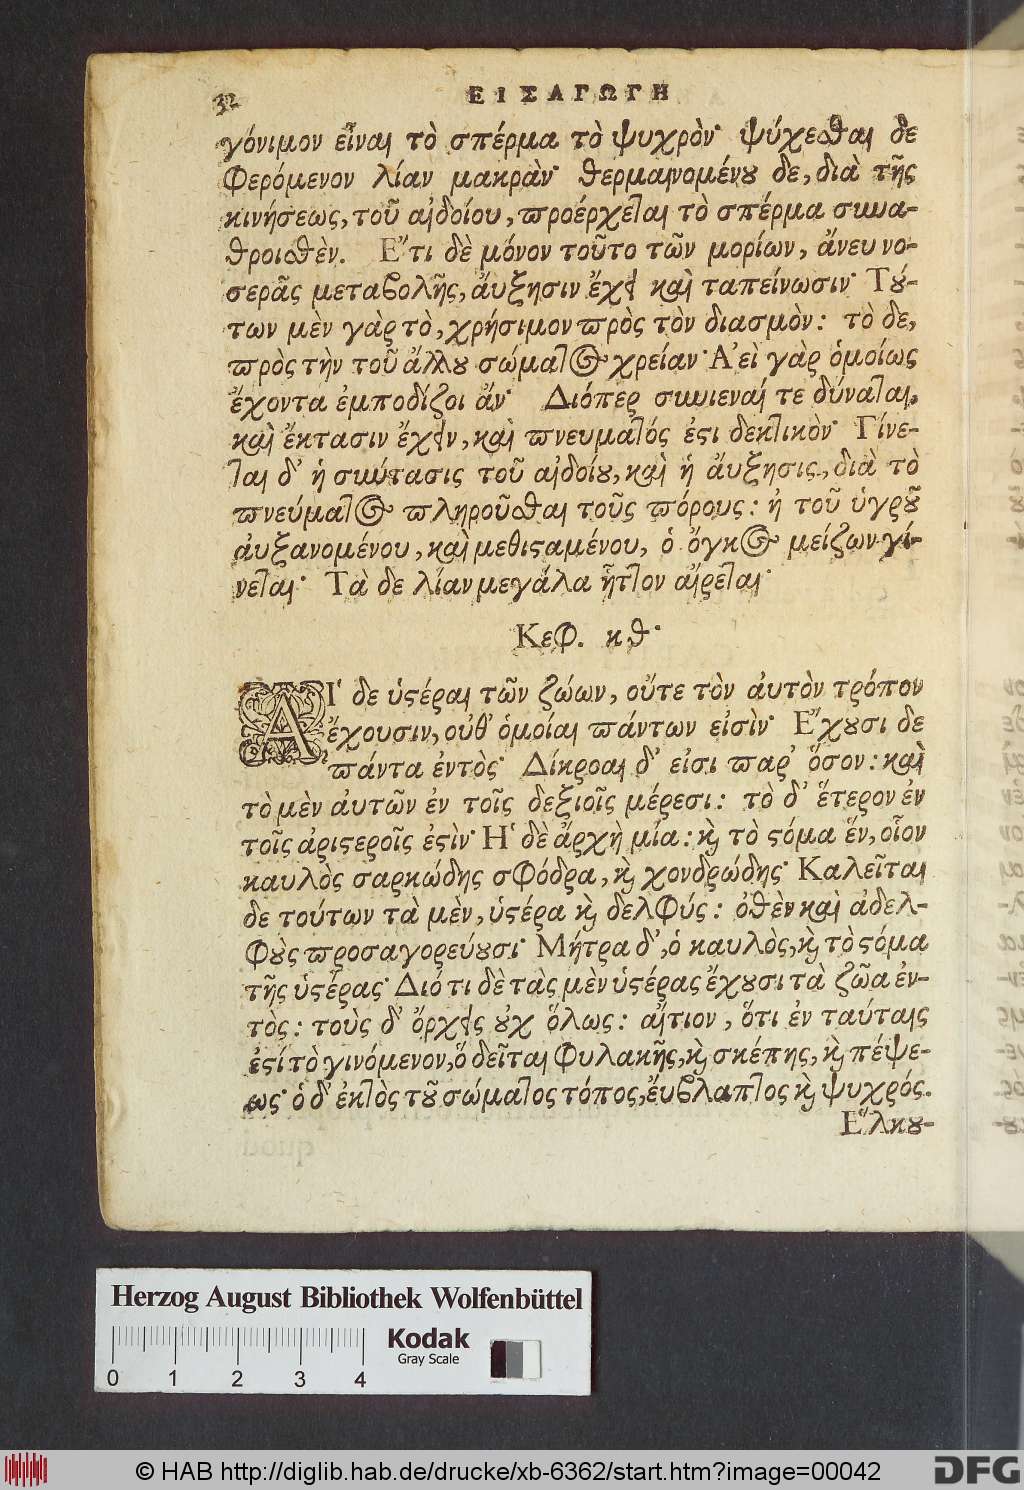 32
ΕΙΣΑΓΩΓΗ
γόνιμον εἶναι τὸ σπέρμα τὸ ψυχρὸν· ψύχεσθαι δε
φερόμενον λίαν μακρὰν· θερμαινομένου δε, διὰ τῆς
κινήσεως, τοῦ αἰδοίου, προέρχεται τὸ σπέρμα συνα-
θροισθὲν. Ἔτι δὲ μόνον τοῦτο τῶν μορίων, ἄνευ νο-
σερᾶς μεταβολῆς, ἄυξησιν ἔχει καὶ ταπείνωσιν· Τού-
των μὲν γὰρ τὸ, χρήσιμον πρὸς τὸν διασμὸν: τὸ δε,
πρὸς τὴν τοῦ ἄλλου σώματος χρείαν· Ἀεὶ γὰρ ὁμοίως
ἔχοντα ἐμποδίζοι ἄν· Διόπερ συνιεναί τε δύναται,
καὶ ἔκτασιν ἔχειν, καὶ πνευματός ἐστι δεκτικὸν· Γίνε-
ται δ’ ἡ σύντασις τοῦ αἰδοίου, καὶ ἡ ἄυξησις, διὰ τὸ
πνεύματος πληροῦσθαι τοῦς πόρους: ἠ τοῦ ὑγροῦ
ἀυξανομένου, καὶ μεθισταμένου, ὁ ὄγκος μείζων γί-
νεται· Τὰ δε λίαν μεγάλα ἧττον αἴρεται·
Κεφ. κθ·
ΑἹ δε ὑστέραι τῶν ζώων, οὔτε τὸν ἀυτὸν τρόπον
ἔχουσιν, οὐθ’ ὁμοίαι πάντων εἰσὶν· Ἔχουσι δε
πάντα ἐντὸς· Δίκροαι δ’ εἰσι παρ’ ὅσον: καὶ
τὸ μὲν ἀυτῶν ἐν τοῖς δεξιοῖς μέρεσι: τὸ δ’ ἕτερον ἐν
τοῖς ἀριστεροῖς ἐστὶν· Ἡ δὲ ἄρχὴ μία: καὶ τὸ στόμα ἕν, οἷον
καυλὸς σαρκώδης σφόδρα, καὶ χονδρώδης· Καλεῖται
δε τούτων τὰ μὲν, ὑστέρα καὶ δελφύς: ὀθὲν καὶ ἀδελ-
φοὺς προσαγορεύουσι· Μήτρα δ’, ὁ καυλὸς, καὶ τὸ στόμα
τῆς ὑστέρας· Διότι δὲ τὰς μὲν ὑστέρας ἔχουσι τὰ ζῶα ἐν-
τὸς: τοὺς δ’ ὄρχεις οὐχ ὅλως: αἴτιον, ὅτι ἐν ταύταις
ἐστί τὸ γινόμενον, ὃ δεῖται φυλακῆς, καὶ σκέπης, καὶ πέψε-
ως· ὁ δ’ ἐκτὸς τοῦ σώματος τόπος, ἔυβλαπτος καὶ ψυχρός.
Ἕλκου-
Herzog August Bibliothek Wolfenbüttel
Kodak
Gray Scale
0 1 2 3 4
© HAB http://diglib.hab.de/drucke/xb-6362/start.htm?image=00042
DFG